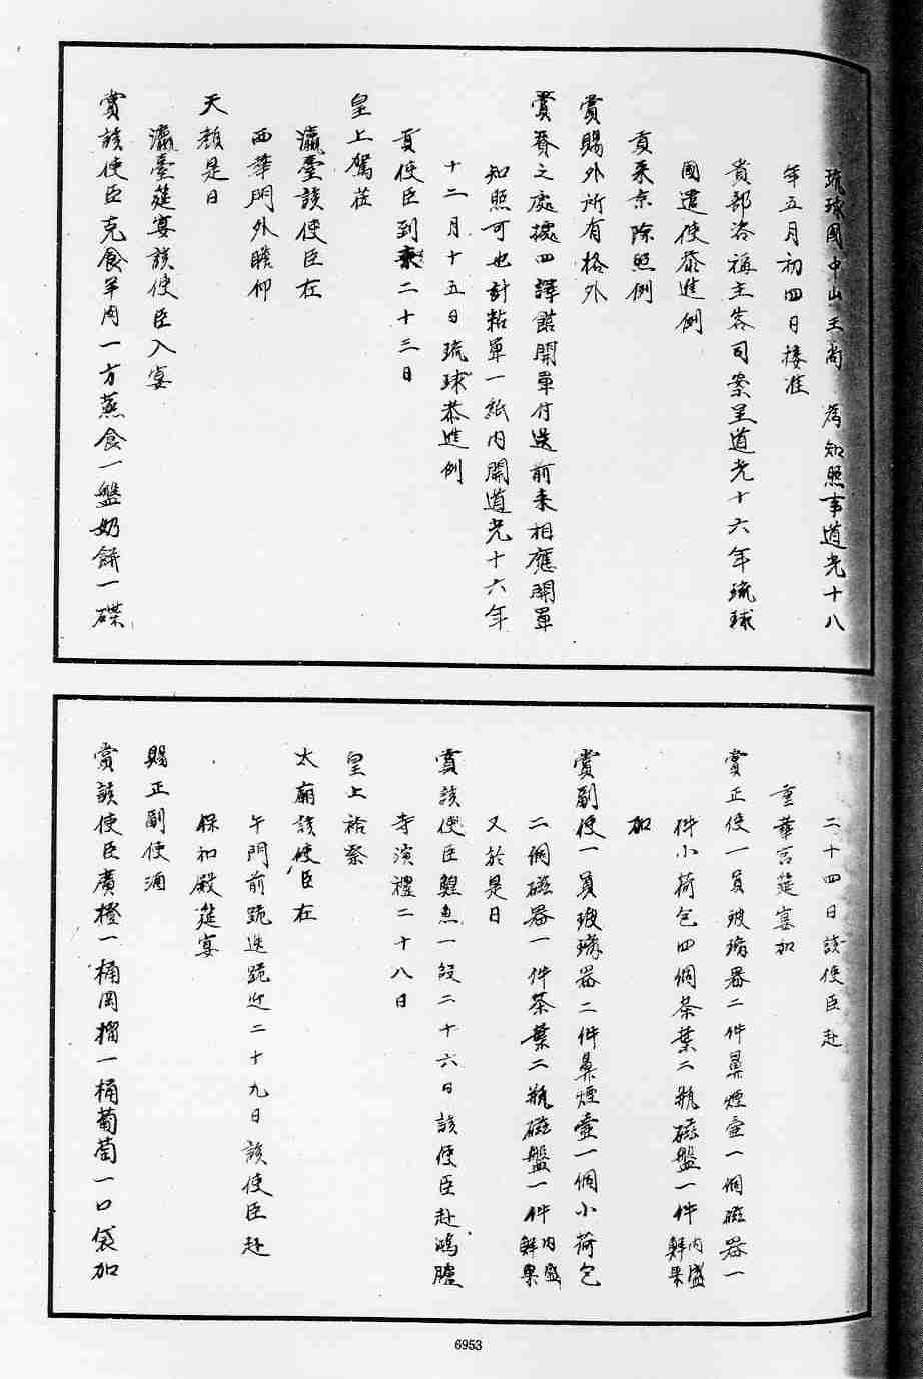 琉球國中山王尚 為知照事道光十八
年五月初四日接准
貴部咨稱主客司案呈道光十六年琉球
國遣使恭進例
貢來京除照例
賞賜外所有格外
賞賚之處據四譯館開單付送前來相應開單
知照可也計粘單一紙內開道光十六年
十二月十五日琉球恭進例
貢使臣到來二十三日
皇上駕莅
瀛臺該使臣在
西華門外瞻仰
天顏是日
瀛臺筵宴該使臣入宴
賞該使臣克食羊肉一方蒸食一盤奶餅一碟
二十四日該使臣赴
重華宮筵宴加
賞正使一員玻璃器二件鼻煙壺一個磁器一
件小荷包四個茶葉二瓶磁盤一件內盛鮮果
加
賞副使一員玻璃器二件鼻煙壺一個小荷包
二個磁器一件茶葉二瓶磁盤一件內盛鮮果
又於是日
賞該使臣鰉魚一段二十六日該使臣赴鴻臚
寺演禮二十八日
皇上祫祭
太廟該使臣在
午門前跪送跪迎二十九日該使臣赴
保和殿筵宴
賜正副使酒
賞該使臣廣橙一桶岡榴一桶葡萄一口袋加
6953